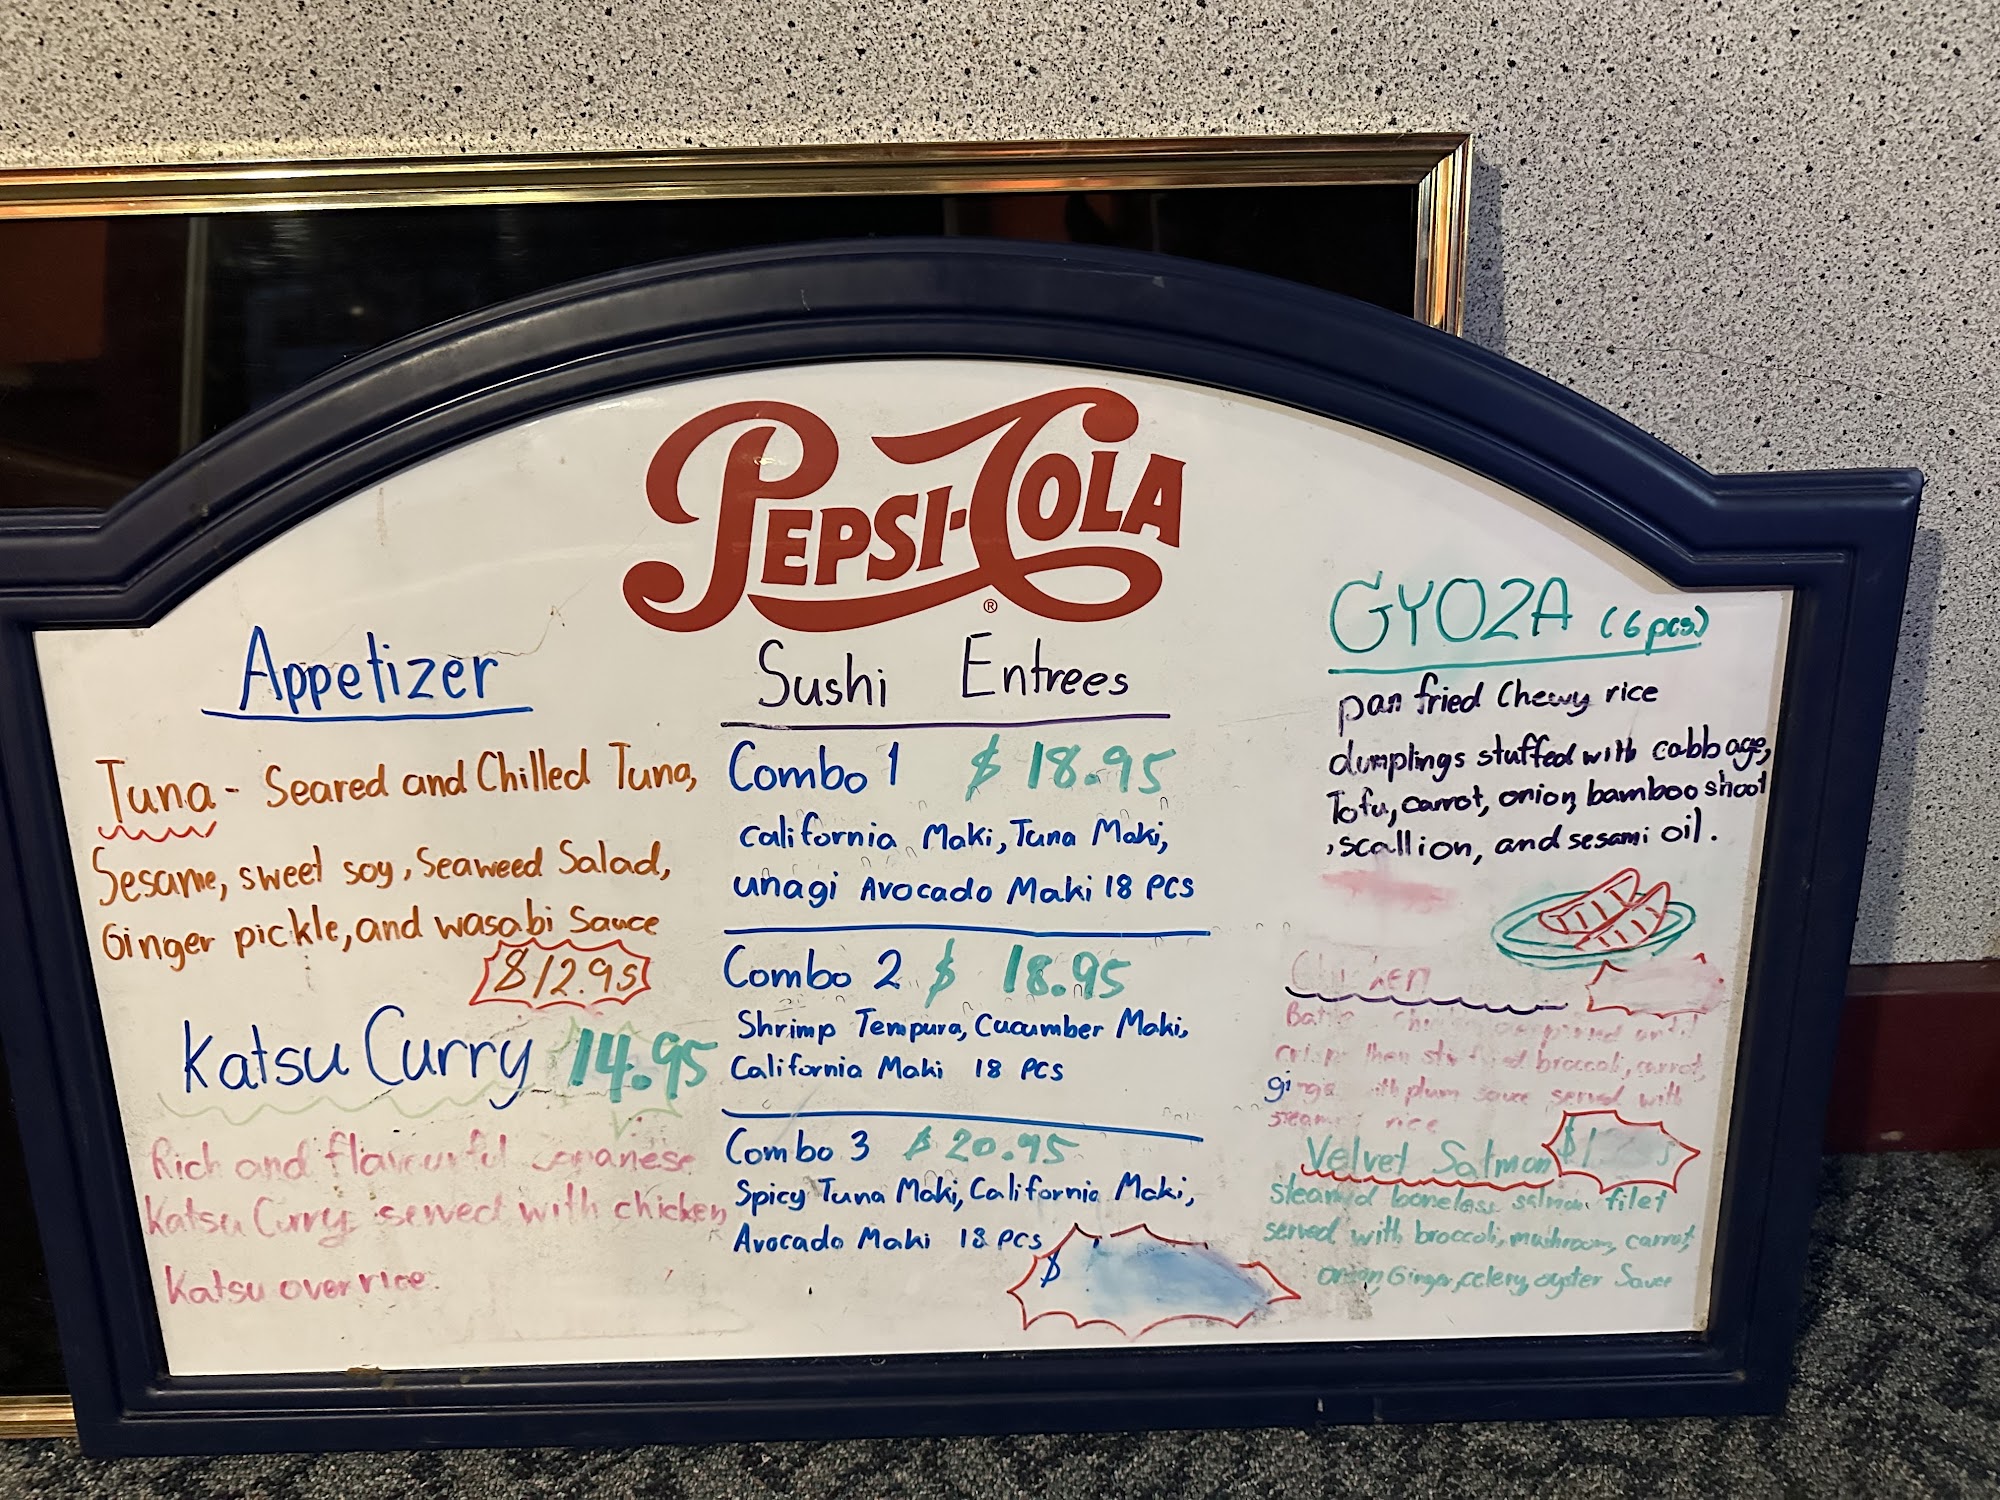 PEPSI-COLA
®
Appetizer
Tuna - Seared and Chilled Tuna,
Sesame, sweet soy, Seaweed Salad,
Ginger pickle, and wasabi Sauce
$12.95
Katsu Curry 14.95
Rich and flavourful Japanese
Katsu Curry served with chicken
Katsu over rice.
Sushi Entrees
Combo 1 $ 18.95
california Maki, Tuna Maki,
unagi Avocado Maki 18 PCS
Combo 2 $ 18.95
Shrimp Tempura, Cucumber Maki,
California Maki 18 PCS
Combo 3 $ 20.95
Spicy Tuna Maki, California Maki,
Avocado Maki 18 PCS
$
GYOZA (6 pcs)
pan fried Chewy rice
dumplings stuffed with cabbage,
Tofu, carrot, onion, bamboo shoot
, scallion, and sesami oil.
Chicken
until
then broccoli, carrot,
plum sauce served with
rice
Velvet Salmon $1
steamed boneless salmon filet
served with broccoli, mushroom, carrot,
onion, Ginger, celery, oyster Sauce